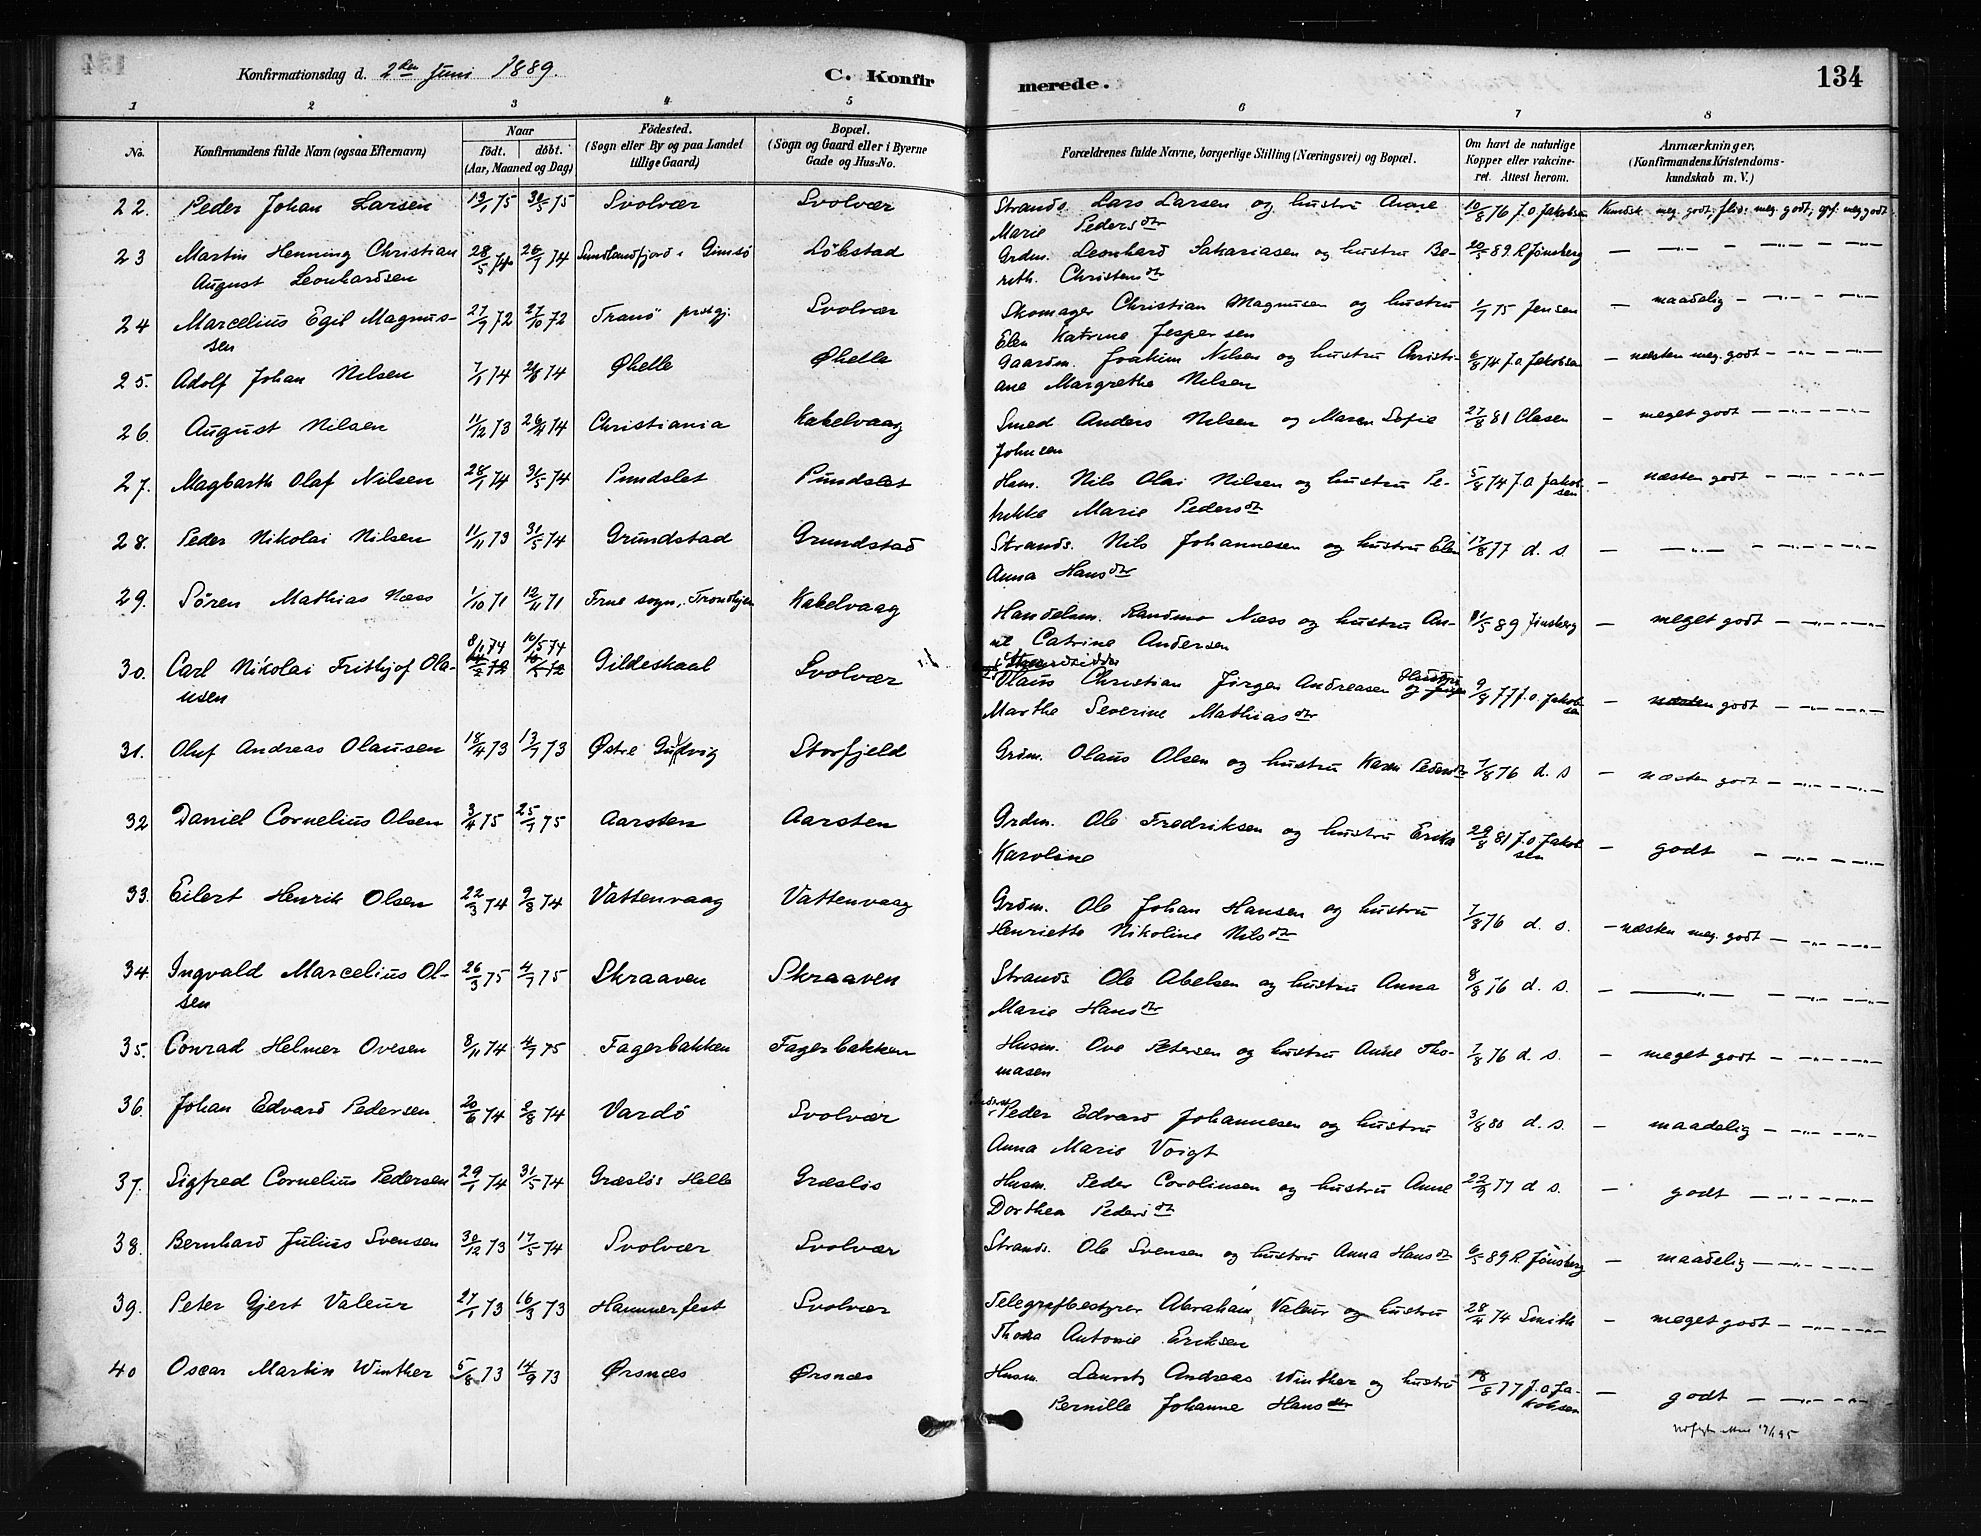 134
Konfirmationsdag d. 2den Juni 1889.
C. Konfirmerede.
1 2 3 4 5 6 7 8
No.
Konfirmandens fulde Navn (ogsaa Efternavn)
Naar
født. døbt.
(Aar, Maaned og Dag)
Fødested.
(Sogn eller By og paa Landet
tillige Gaard)
Bopæl.
(Sogn og Gaard eller i Byerne
Gade og Hus-No.
Forældrenes fulde Navne, borgerlige Stilling (Næringsvei) og Bopæl.
Om havt de naturlige
Kopper eller vakcine-
ret. Attest herom.
Anmærkninger,
(Konfirmandens Kristendoms-
kundskab m. V.)
22. Peder Johan Larsen 13/1 75 30/5 75 Svolvær Svolvær Strands. Lars Larsen og hustru Anne 10/8 76 J.O. Jakobsen Kundsk. meg. godt, flid: meg. godt, opf. meg godt
Marie Pedersdtr
23 Martin Henning Christian 28/5 74 26/7 74 Sundlandsfjord i Gimsø Løkstad Grdm. Leonhard Sakariasen og hustru Be- 20/5 89. R. Jønsberg — —„— — —„— — —„—
August Leonhardsen reth. Christensdtr
24 Marcelius Egil Magnus- 27/9 72 27/10 72 Tranø prstgj. Svolvær Skomager Christian Magnusen og hustru 1/7 75 Jensen — maadelig — —„— — —„—
sen Elen Katrine Jespersen
25. Adolf Johan Nilsen 7/1 74 74 Øhelle Øhelle Gaardm. Joakim Nilsen og hustru Christi- 6/8 74 J.O. Jakobsen — næsten meg. godt — —„— — —„—
ane Margrethe Nilsen
26. August Nilsen 11/12 73 26/4 74 Christiania Kabelvaag Smed Anders Nilsen og Maren Sofie 27/8 81 Clasen — meget godt — —„— —„—
Johnsen
27. Magbarth Olaf Nilsen 28/1 74 31/5 74 Pundslet Pundslet Husm. Nils Olai Nilsen og hustru Pe- 5/8 74 J.O. Jakob- — næsten godt — —„— —„—
sen
rikke Marie Pedersdtr
28. Peder Nikolai Nilsen 11/11 73 31/5 74 Grundstad Grundstad Strands. Nils Johannesen og hustru Elen 17/8 77 d. s. — —„— — —„— — —„—
Anna Hansdtr
29. Søren Mathias Næss 1/10 71 12/11 71 Frue sogn, Trondhjem Kabelvaag Handelsm. Randmo Næss og hustru An- 11/5 89 Jønsberg — meget godt — —„— — —„—
ne Catrine Andersen
8/1 74 10/5 74 Strandsidder
30. Carl Nikolai Frithjof Ola- Gildeskaal Svolvær Olaus Christian Jørgen Andreasen og Hustru 9/8 77 J.O. Jakob- — næsten godt — —„— — —„—
sen
usen Marthe Severine Mathiasdtr
31. Oluf Andreas Olausen 18/4 73 13/7 73 Østre Gudvig Storfjeld Grdm. Olaus Olsen og hustru Karen Pedersdtr 7/8 76 d. s — næsten godt — —„— — —„—
32 Daniel Cornelius Olsen 3/4 75 25/7 75 Aarsten Aarsten Grdm. Ole Fredriksen og hustru Erika 29/8 81 J.O. Jakob- — godt — —„— — —„—
sen
Karoline
33. Eilert Henrik Olsen 22/3 74 9/8 74 Vattenvaag Vattenvaag Grdm. Ole Johan Hansen og hustru 7/8 76 d. s. — næsten meg. godt — —„— — —„—
Henriette Nikoline Nilsdtr
34. Ingvald Marcelius Ol- 26/3 75 4/7 75 Skraaven Skraaven Strands Ole Abelsen og hustru Anna 8/8 76 d. s. — —„— — —„— — —„—
sen Marie Hansdtr
35. Conrad Helmer Ovesen 8/11 74 4/7 75 Fagerbakken Fagerbakken Husm. Ove Petersen og hustru Anne Tho- 7/8 76 d. s. — meget godt — —„— — —„—
masen
36. Johan Edvard Pedersen 20/6 74 2/8 74 Vardø Svolvær Peder Edvard Johannesen og hustru 3/8 80 d. s. — maadelig — —„— — —„—
Anna Marie Voigt
37. Sigfred Cornelius Pedersen 29/1 74 31/5 74 Græsløs Helle Græsløs Husm. Peder Carolinsen og hustru Anne 22/9 77 d s. — godt — —„— — —„—
Dorthea Pedersdtr
38. Bernhard Julius Svensen 30/12 73 17/5 74 Svolvær Svolvær Strands. Ole Svensen og hustru Anna Hansdtr 6/5 89 R. Jønsberg — maadelig — —„— — —„—
39. Peter Gjert Valeur 27/1 73 16/3 73 Hammerfest Svolvær Telegrafbestyrer Abraham Valeur og hustru 28/4 74 Smith — meget godt — —„— — —„—
Thora Antonie Eriksen
40 Oscar Martin Winther 5/8 73 14/9 73 Ørsnæs Ørsnæs Husm. Laurits Andreas Winther og hustru 18/8 77 J.O. Ja- — godt — —„— — —„—
kobsen
Pernille Johanne Hansdtr